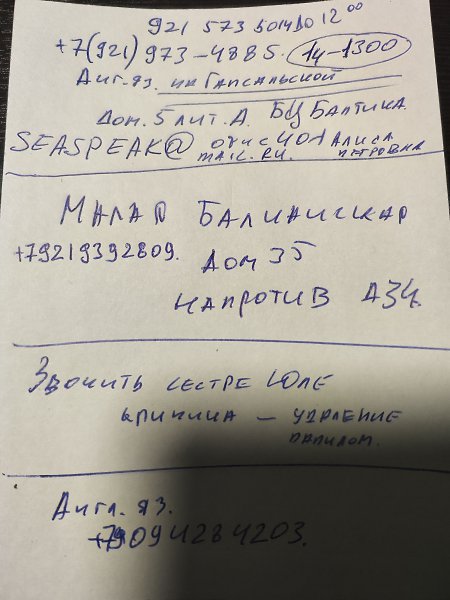 921 573 60 14 до 12 00
+7(921) 973-4885. 14-1300
Анг.яз. на Гапсальской
Дом. 5 лит. А БЦ Балтика
SEASPEAK@ офис 401 Алиса
mail.ru. Петровна
Малая Балканская
+79219392809. дом 35
напротив АЗС
Звонить сестре Юле
клиника – удаление
папилом.
Англ. яз.
+79094284203.